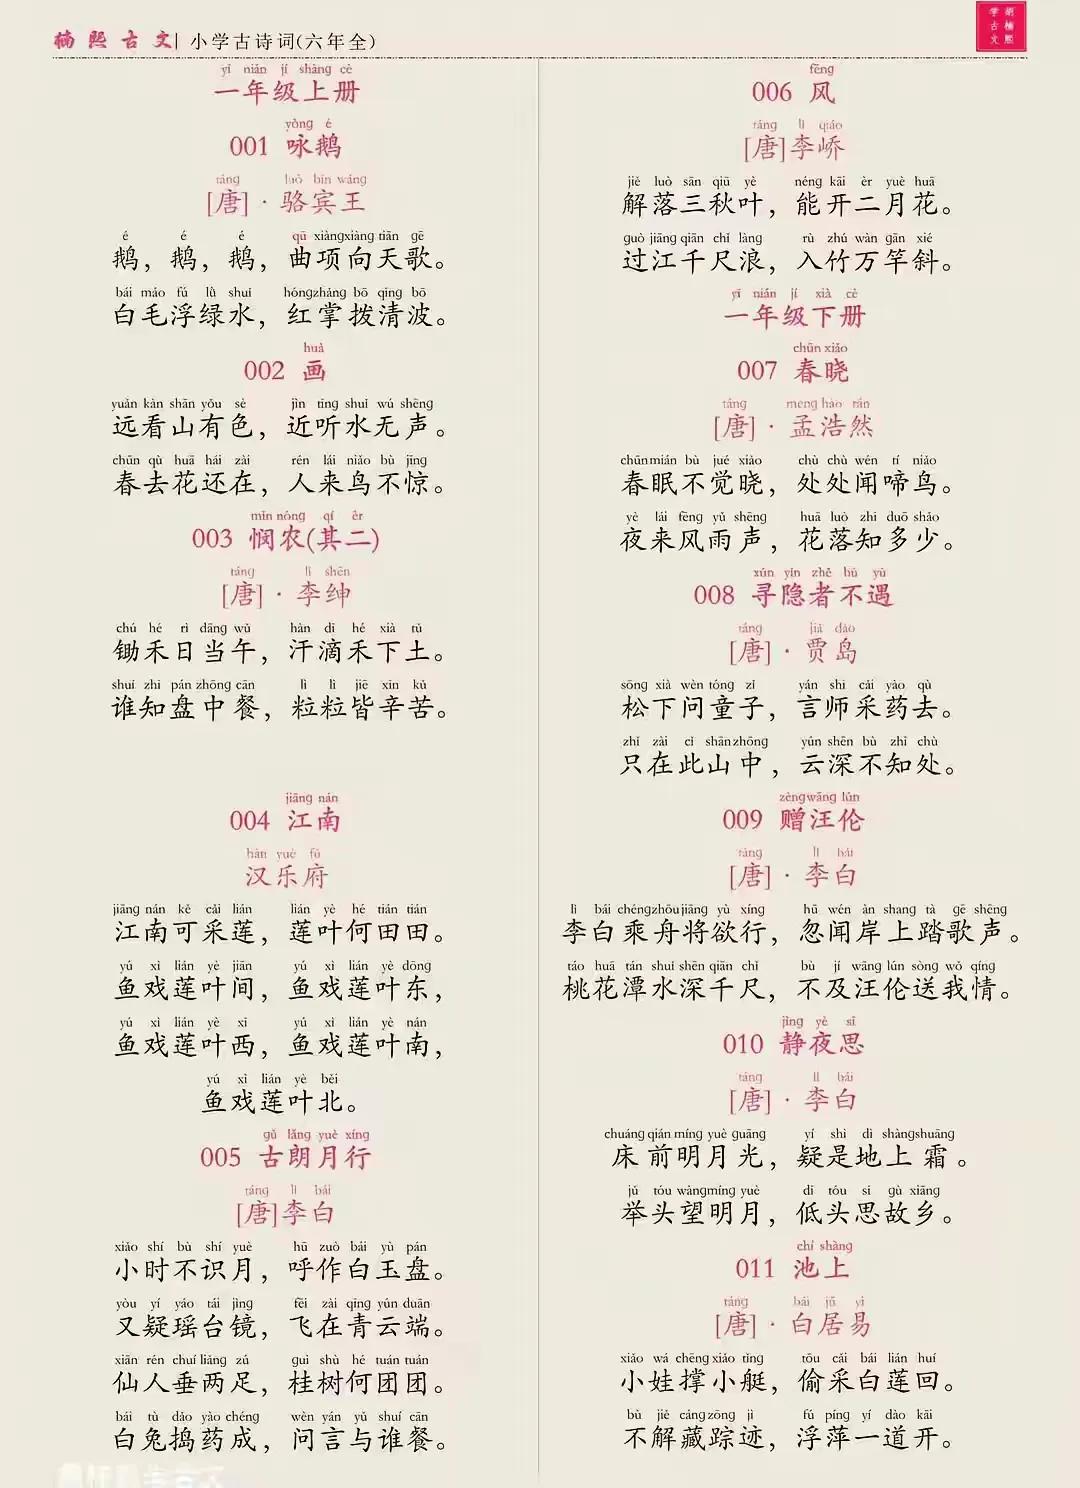 楠熙古文| 小学古诗词(六年全)
胡楠熙
学古文
yī nián jí shàng cè
一年级上册
yǒng é
001 咏鹅
táng luò bīn wáng
[唐]·骆宾王
é é é qū xiàng xiàng tiān gē
鹅，鹅，鹅，曲项向天歌。
bái máo fú lǜ shuǐ hóng zhǎng bō qīng bō
白毛浮绿水，红掌拨清波。
huà
002 画
yuǎn kàn shān yǒu sè jìn tīng shuǐ wú shēng
远看山有色，近听水无声。
chūn qù huā hái zài rén lái niǎo bù jīng
春去花还在，人来鸟不惊。
mǐn nóng qí èr
003 悯农(其二)
táng lǐ shēn
[唐]·李绅
chú hé rì dāng wǔ hàn dī hé xià tǔ
锄禾日当午，汗滴禾下土。
shuí zhī pán zhōng cān lì lì jiē xīn kǔ
谁知盘中餐，粒粒皆辛苦。
jiāng nán
004 江南
hàn yuè fǔ
汉乐府
jiāng nán kě cǎi lián lián yè hé tián tián
江南可采莲，莲叶何田田。
yú xì lián yè jiān yú xì lián yè dōng
鱼戏莲叶间，鱼戏莲叶东，
yú xì lián yè xī yú xì lián yè nán
鱼戏莲叶西，鱼戏莲叶南，
yú xì lián yè běi
鱼戏莲叶北。
gǔ lǎng yuè xíng
005 古朗月行
táng lǐ bái
[唐]李白
xiǎo shí bù shí yuè hū zuò bái yù pán
小时不识月，呼作白玉盘。
yòu yí yáo tái jìng fēi zài qīng yún duān
又疑瑶台镜，飞在青云端。
xiān rén chuí liǎng zú guì shù hé tuán tuán
仙人垂两足，桂树何团团。
bái tù dǎo yào chéng wèn yán yǔ shuí cān
白兔捣药成，问言与谁餐。
fēng
006 风
táng lǐ qiáo
[唐]李峤
jiě luò sān qiū yè néng kāi èr yuè huā
解落三秋叶，能开二月花。
guò jiāng qiān chǐ làng rù zhú wàn gān xié
过江千尺浪，入竹万竿斜。
yī nián jí xià cè
一年级下册
chūn xiǎo
007 春晓
táng mèng hào rán
[唐]·孟浩然
chūn mián bù jué xiǎo chù chù wén tí niǎo
春眠不觉晓，处处闻啼鸟。
yè lái fēng yǔ shēng huā luò zhī duō shǎo
夜来风雨声，花落知多少。
xún yǐn zhě bù yù
008 寻隐者不遇
táng jiǎ dǎo
[唐]·贾岛
sōng xià wèn tóng zǐ yán shī cǎi yào qù
松下问童子，言师采药去。
zhǐ zài cǐ shān zhōng yún shēn bù zhī chù
只在此山中，云深不知处。
zèng wāng lún
009 赠汪伦
táng lǐ bái
[唐]·李白
lǐ bái chéng zhōu jiāng yù xíng hū wén àn shang tà gē shēng
李白乘舟将欲行，忽闻岸上踏歌声。
táo huā tán shuǐ shēn qiān chǐ bù jí wāng lún sòng wǒ qíng
桃花潭水深千尺，不及汪伦送我情。
jìng yè sī
010 静夜思
táng lǐ bái
[唐]·李白
chuáng qián míng yuè guāng yí shì dì shàng shuāng
床前明月光，疑是地上霜。
jǔ tóu wàng míng yuè dī tóu sī gù xiāng
举头望明月，低头思故乡。
chí shàng
011 池上
táng bái jū yì
[唐]·白居易
xiǎo wá chēng xiǎo tǐng tōu cǎi bái lián huí
小娃撑小艇，偷采白莲回。
bù jiě cáng zōng jì fú píng yí dào kāi
不解藏踪迹，浮萍一道开。